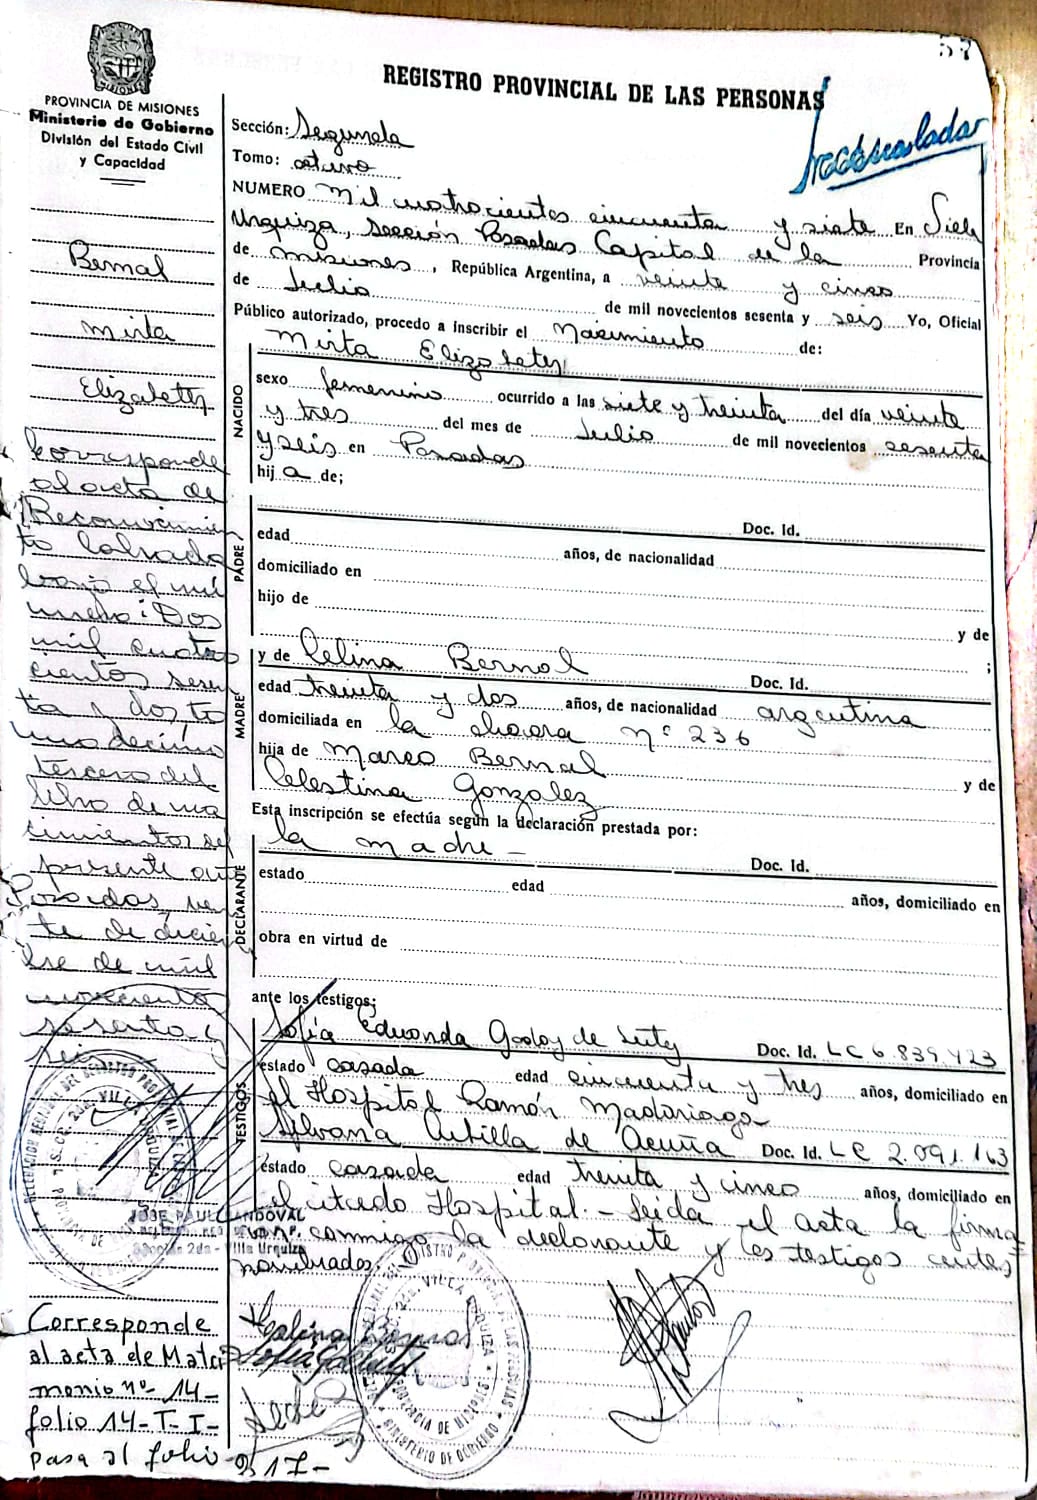 57
REGISTRO PROVINCIAL DE LAS PERSONAS
PROVINCIA DE MISIONES
Ministerio de Gobierno
División del Estado Civil
y Capacidad
Bernal
Mirta
Elizabeth
Corresponde
al acta de
Reconocimien
to labrada
bajo el nú
mero: Dos
mil cuatro
cientos sesen
ta y dos to
mo decimo
tercero del
libro de na
cimientos del
presente año
Posadas, vein
te de diciem
bre de mil
novecientos
sesenta y
seis
JOSE PAUL SANDOVAL
Sección 2da - Villa Urquiza
Corresponde
al acta de Matri
monio nº 14-
folio 14-T-I-
pasa al folio
217-
Sección: Segunda
Tomo: octavo
NUMERO Mil cuatrocientos cincuenta y siete En Villa
Urquiza, Sección Posadas Capital de la Provincia
de Misiones, República Argentina, a veinte y cinco
de Julio de mil novecientos sesenta y seis Yo, Oficial
Público autorizado, procedo a inscribir el Nacimiento de:
Mirta Elizabeth
NACIDO
sexo femenino ocurrido a las siete y treinta del día veinte
y tres del mes de Julio de mil novecientos sesenta
y seis en Posadas
hija de;
PADRE
Doc. Id.
edad años, de nacionalidad
domiciliado en
hijo de
y de
;
MADRE
y de Celina Bernal Doc. Id.
edad treinta y dos años, de nacionalidad argentina
domiciliada en la chacra nº 236
hija de Marco Bernal y de
Celestina Gonzalez
Esta inscripción se efectúa según la declaración prestada por:
DECLARANTE
la madre - Doc. Id.
estado edad años, domiciliado en
obra en virtud de
ante los testigos;
TESTIGOS
Sofia Eduarda Godoy de Doc. Id. LC 6.839.423
estado casada edad cincuenta y tres años, domiciliado en
el Hospital Ramón Madariaga
Silvana de Acuña Doc. Id. LC 2.091.163
estado casada edad treinta y cinco años, domiciliado en
el citado Hospital.- Leida el acta la firma
conmigo la declarante y los testigos antes
nombrados.
Celina Bernal